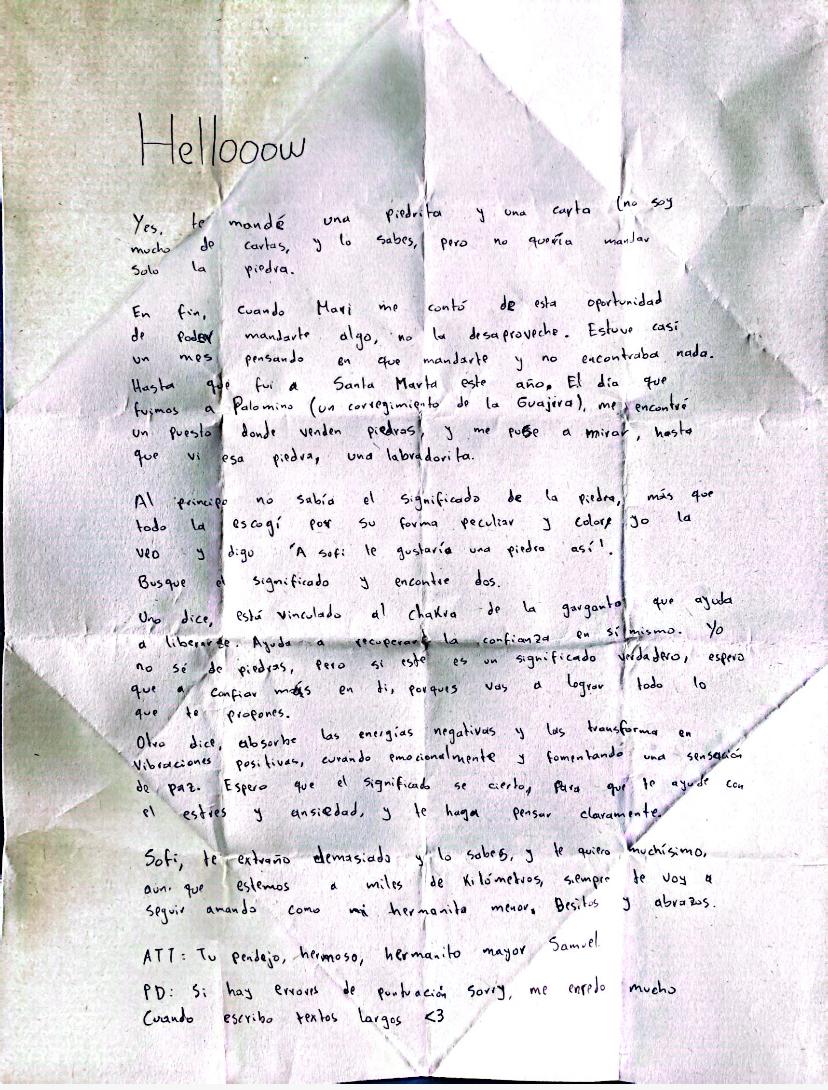 Hellooow
Yes, te mandé una piedrita y una carta (no soy
mucho de cartas, y lo sabes, pero no quería mandar
solo la piedra.
En fin, cuando Mari me contó de esta oportunidad
de poder mandarte algo, no la desaproveche. Estuve casi
un mes pensando en que mandarte y no encontraba nada.
Hasta que fui a Santa Marta este año. El día que
fuimos a Palomino (un corregimiento de la Guajira), me encontré
un puesto donde venden piedras, y me puse a mirar, hasta
que vi esa piedra, una labradorita.
Al principo no sabía el significado de la piedra, más que
todo la escogí por su forma peculiar y color, yo la
veo y digo "A sofi le gustaría una piedra así".
Busque el significado y encontre dos.
Uno dice, está vinculado al chakra de la garganta, que ayuda
a liberarte. Ayuda a recuperar la confianza en sí mismo. Yo
no sé de piedras, pero si este es un significado verdadero, espero
que a confiar más en ti, porques vas a lograr todo lo
que te propones.
Otro dice, absorbe las energías negativas y las transforma en
vibraciones positivas, curando emocionalmente y fomentando una sensación
de paz. Espero que el significado se cierto, para que te ayude con
el estres y ansiedad, y te haga pensar claramente.
Sofi, te extraño demasiado y lo sabes, y te quiero muchísimo,
aun que estemos a miles de kilómetros, siempre te voy a
seguir amando como mi hermanita menor. Besitos y abrazos.
ATT: Tu pendejo, hermoso, hermanito mayor Samuel
PD: Si hay errores de puntuación sorry, me enredo mucho
Cuando escribo textos largos <3